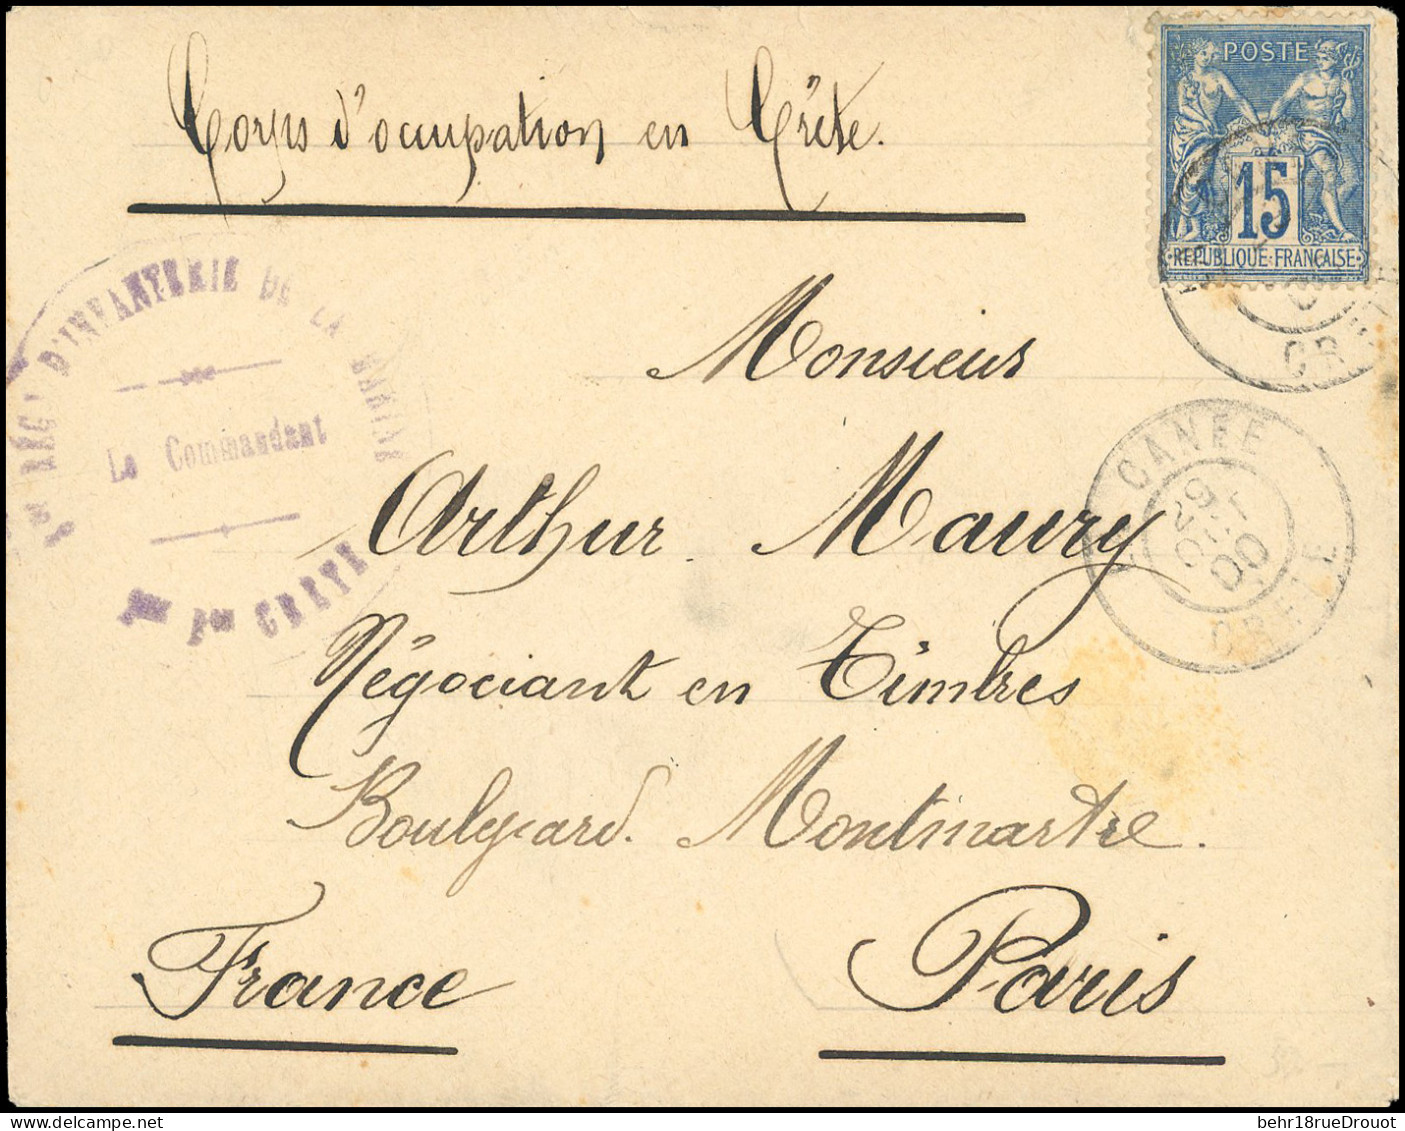 Corps d'occupation en Crête.
POSTE
15
REPUBLIQUE FRANÇAISE
CR
RÉGt D'INFANTERIE DE LA MARINE
Le Commandant
CRETE
Monsieur
Arthur Maury
Négociant en Timbres
Boulevard. Montmartre.
France Paris
LA CANÉE
00
CRETE
behr18rueDrouot